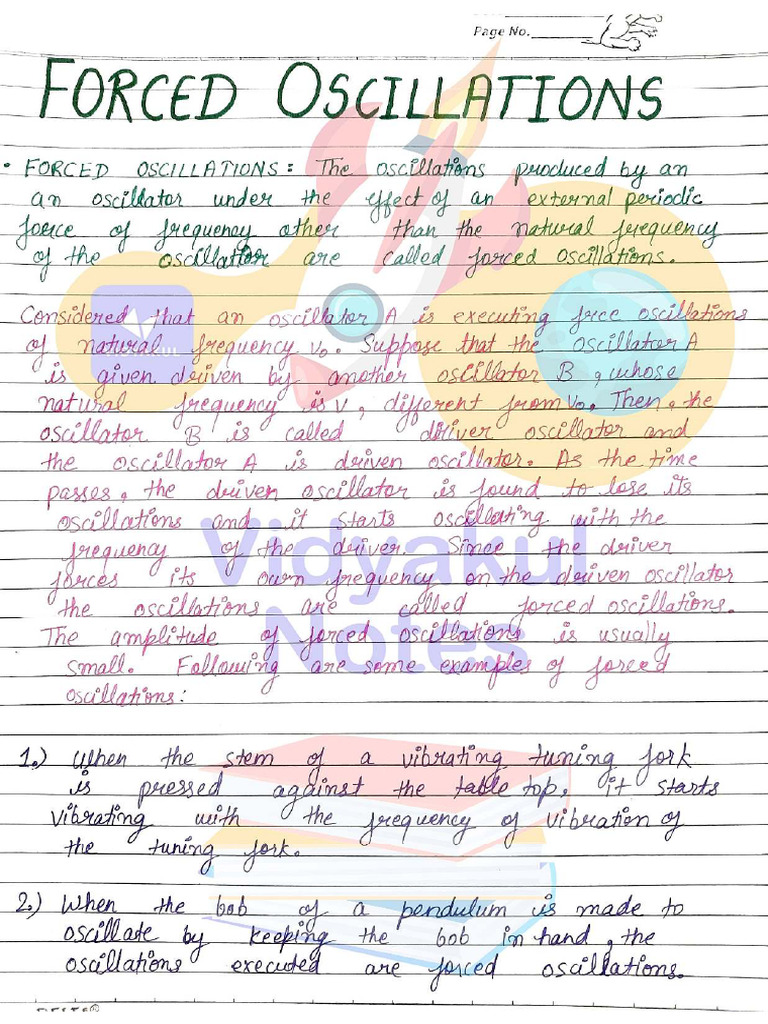 Page No.
FORCED OSCILLATIONS
• FORCED OSCILLATIONS: The oscillations produced by an
an oscillator under the effect of an external periodic
force of frequency other than the natural frequency
of the oscillator are called forced oscillations.
Considered that an oscillator A is executing free oscillations
of natural frequency v₀. Suppose that the oscillator A
is given driven by another oscillator B, whose
natural frequency is v, different from v₀. Then, the
oscillator B is called driver oscillator and
the oscillator A is driven oscillator. As the time
passes, the driven oscillator is found to lose its
oscillations and it starts oscillating with the
frequency of the driver. Since the driver
forces its own frequency on the driven oscillator
the oscillations are called forced oscillations.
The amplitude of forced oscillations is usually
small. Following are some examples of forced
oscillations:
1.) When the stem of a vibrating tuning fork
is pressed against the table top, it starts
vibrating with the frequency of vibration of
the tuning fork.
2.) When the bob of a pendulum is made to
oscillate by keeping the bob in hand, the
oscillations executed are forced oscillations.
Vidyakul
Notes